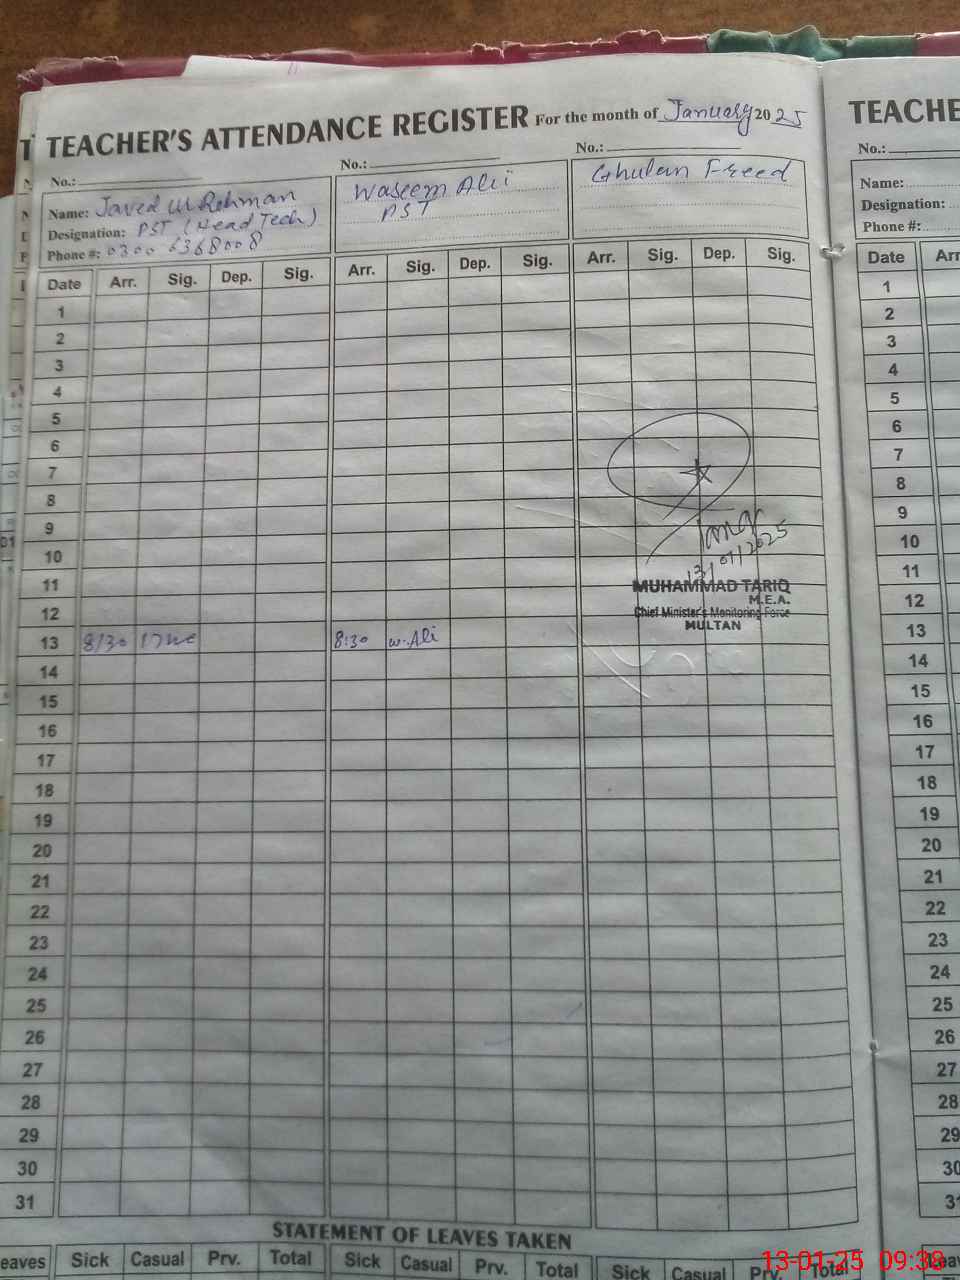 TEACHER'S ATTENDANCE REGISTER For the month of January 2025
No.: No.: No.:
Name: Javed ur Rehman Waseem Ali Ghulam Freed
Designation: PST (Head Tech) PST
Phone #: 0300 6368008
Date Arr. Sig. Dep. Sig. Arr. Sig. Dep. Sig. Arr. Sig. Dep. Sig.
1
2
3
4
5
6
7
8
9
10
11
12
13 8/30 8:30 w.Ali
14
15
16
17
18
19
20
21
22
23
24
25
26
27
28
29
30
31
13/01/2025
MUHAMMAD TARIQ
M.E.A.
Chief Minister's Monitoring Force
MULTAN
STATEMENT OF LEAVES TAKEN
eaves Sick Casual Prv. Total Sick Casual Prv. Total Sick Casual Prv. Total
TEACHE
No.:
Name:
Designation:
Phone #:
Date Arr
1
2
3
4
5
6
7
8
9
10
11
12
13
14
15
16
17
18
19
20
21
22
23
24
25
26
27
28
29
30
31
13-01-25 09:38